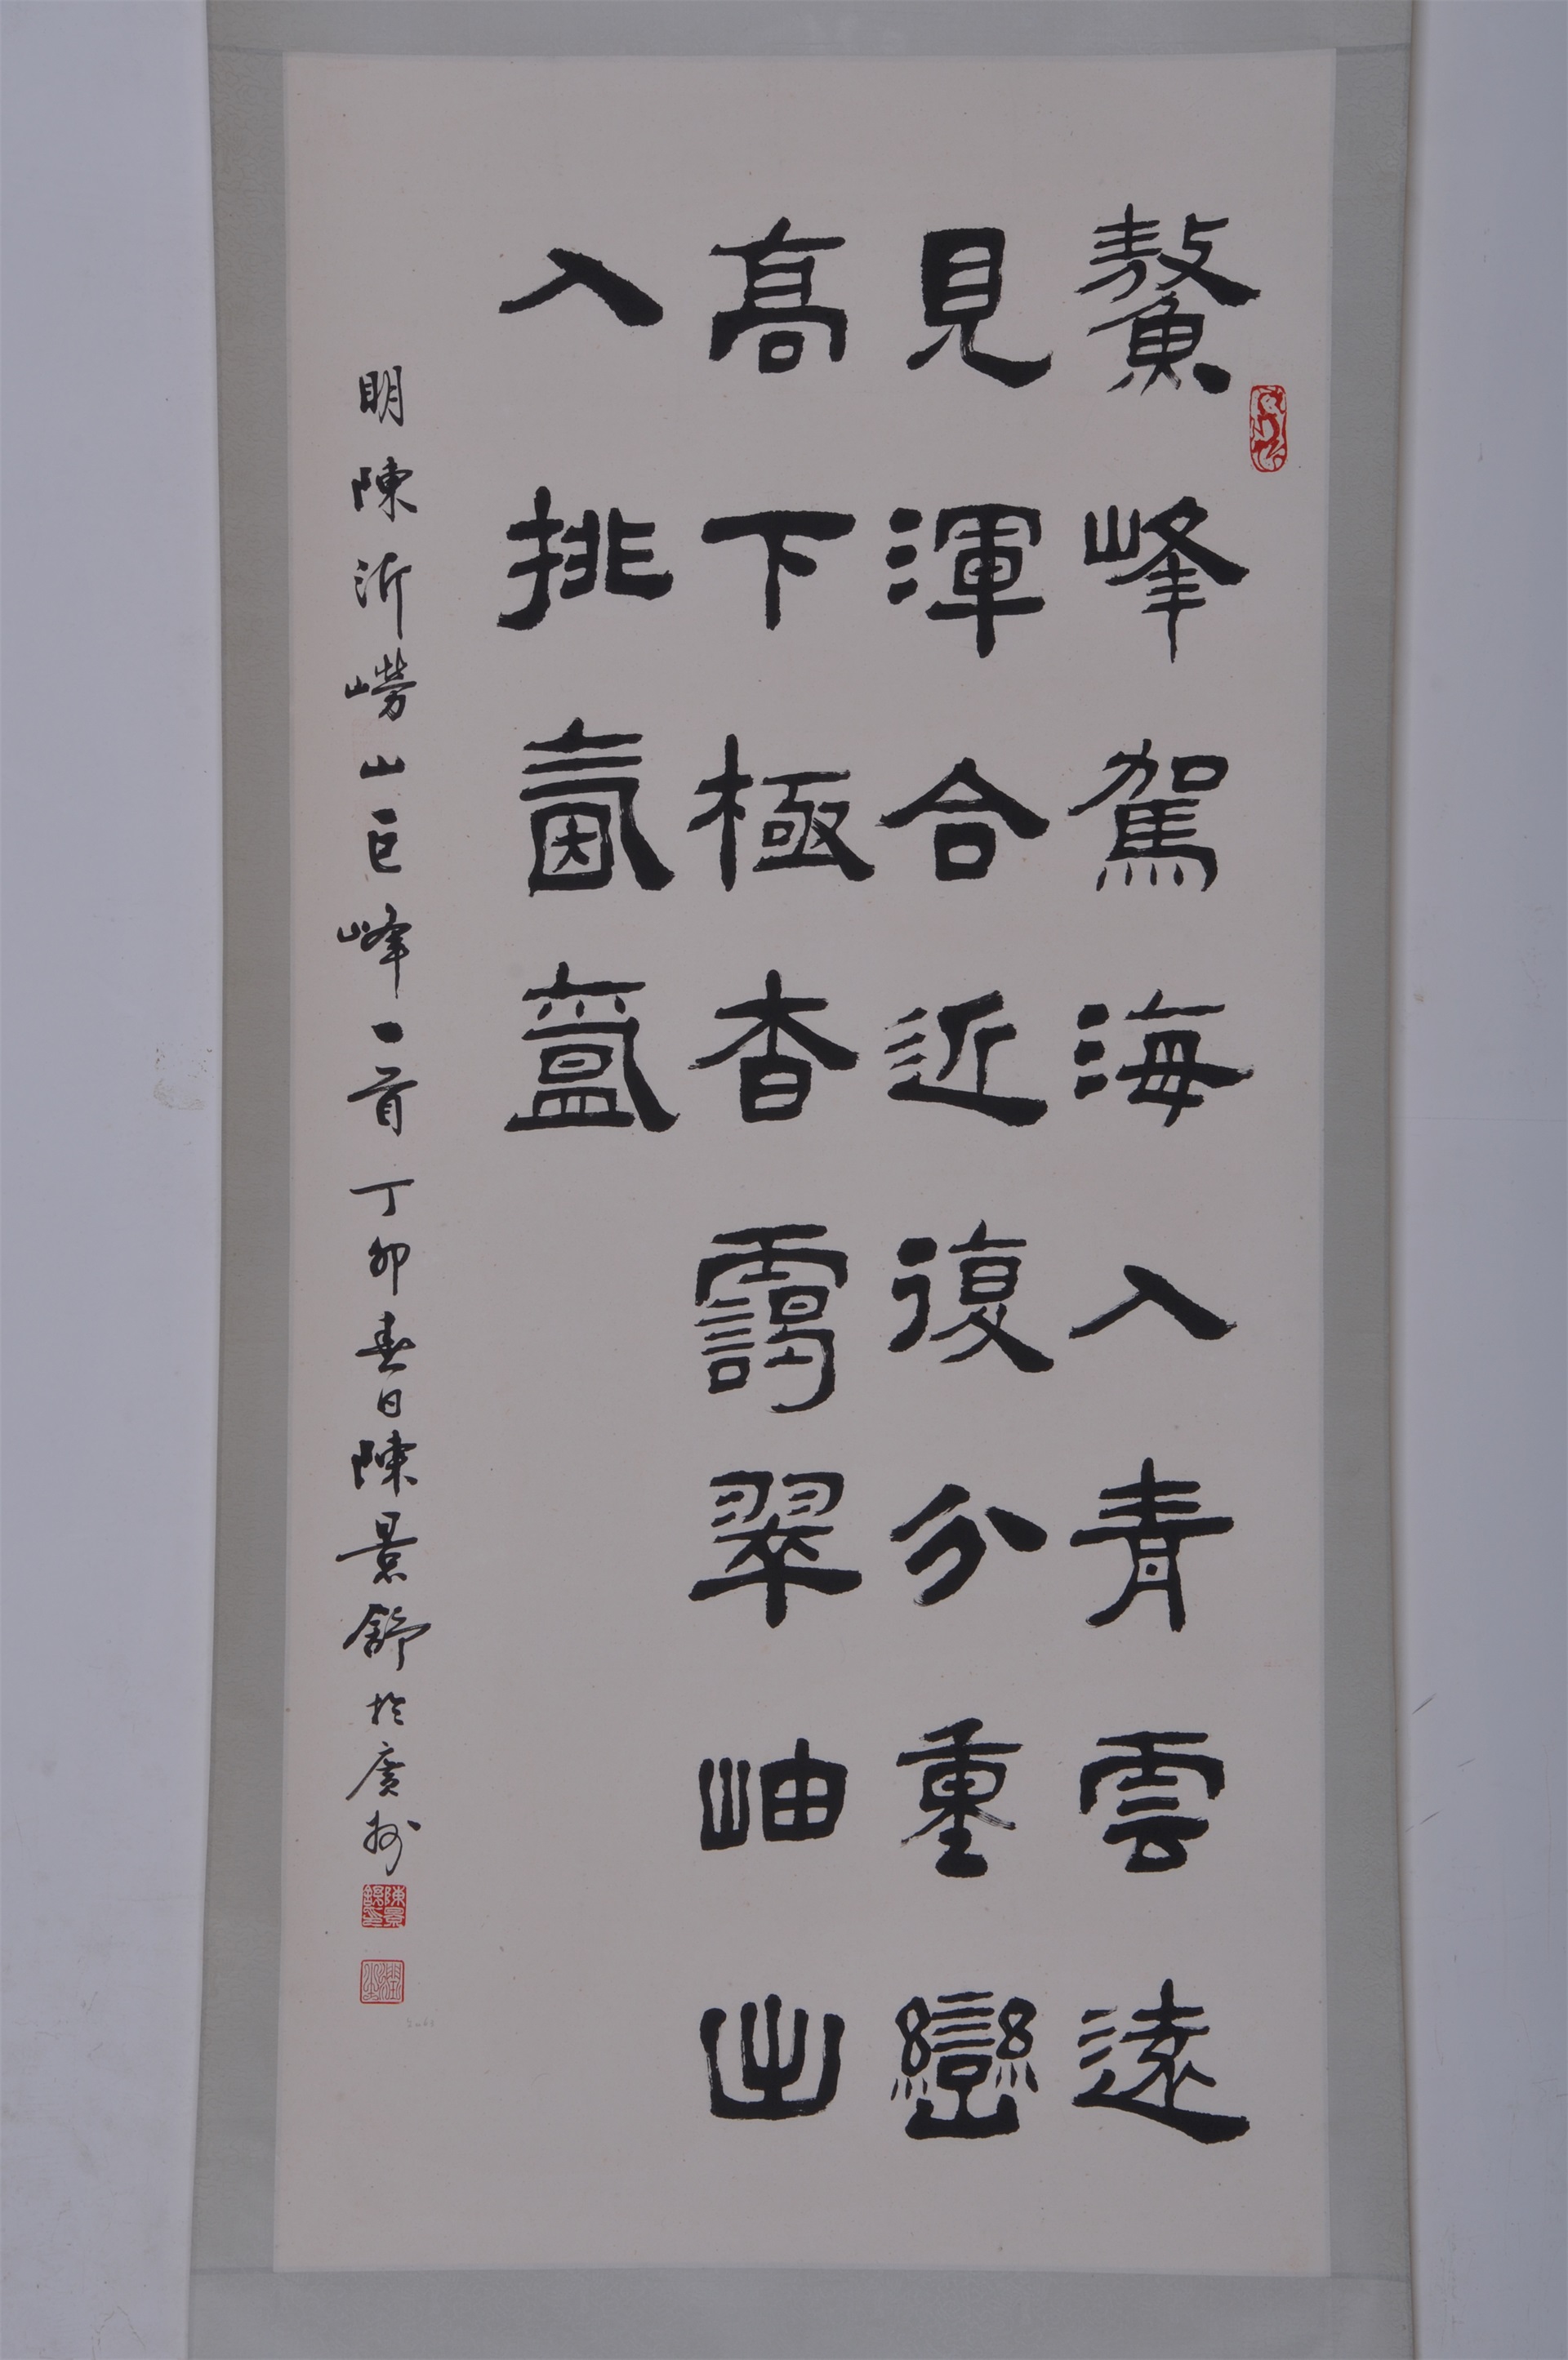 鰲峰駕海入青雲遠
見渾合近復分重巒
高下極杳靄翠岫出
入挑氤氳
明陳沂嶗山巨峰一首丁卯春日陳景舒於廣州
陳景舒印